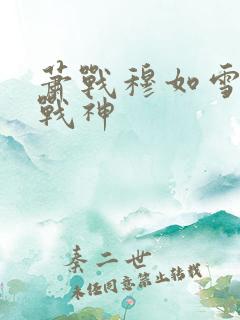 蕭戰穆如雪
戰神
秦二世
未任同意禁止转载